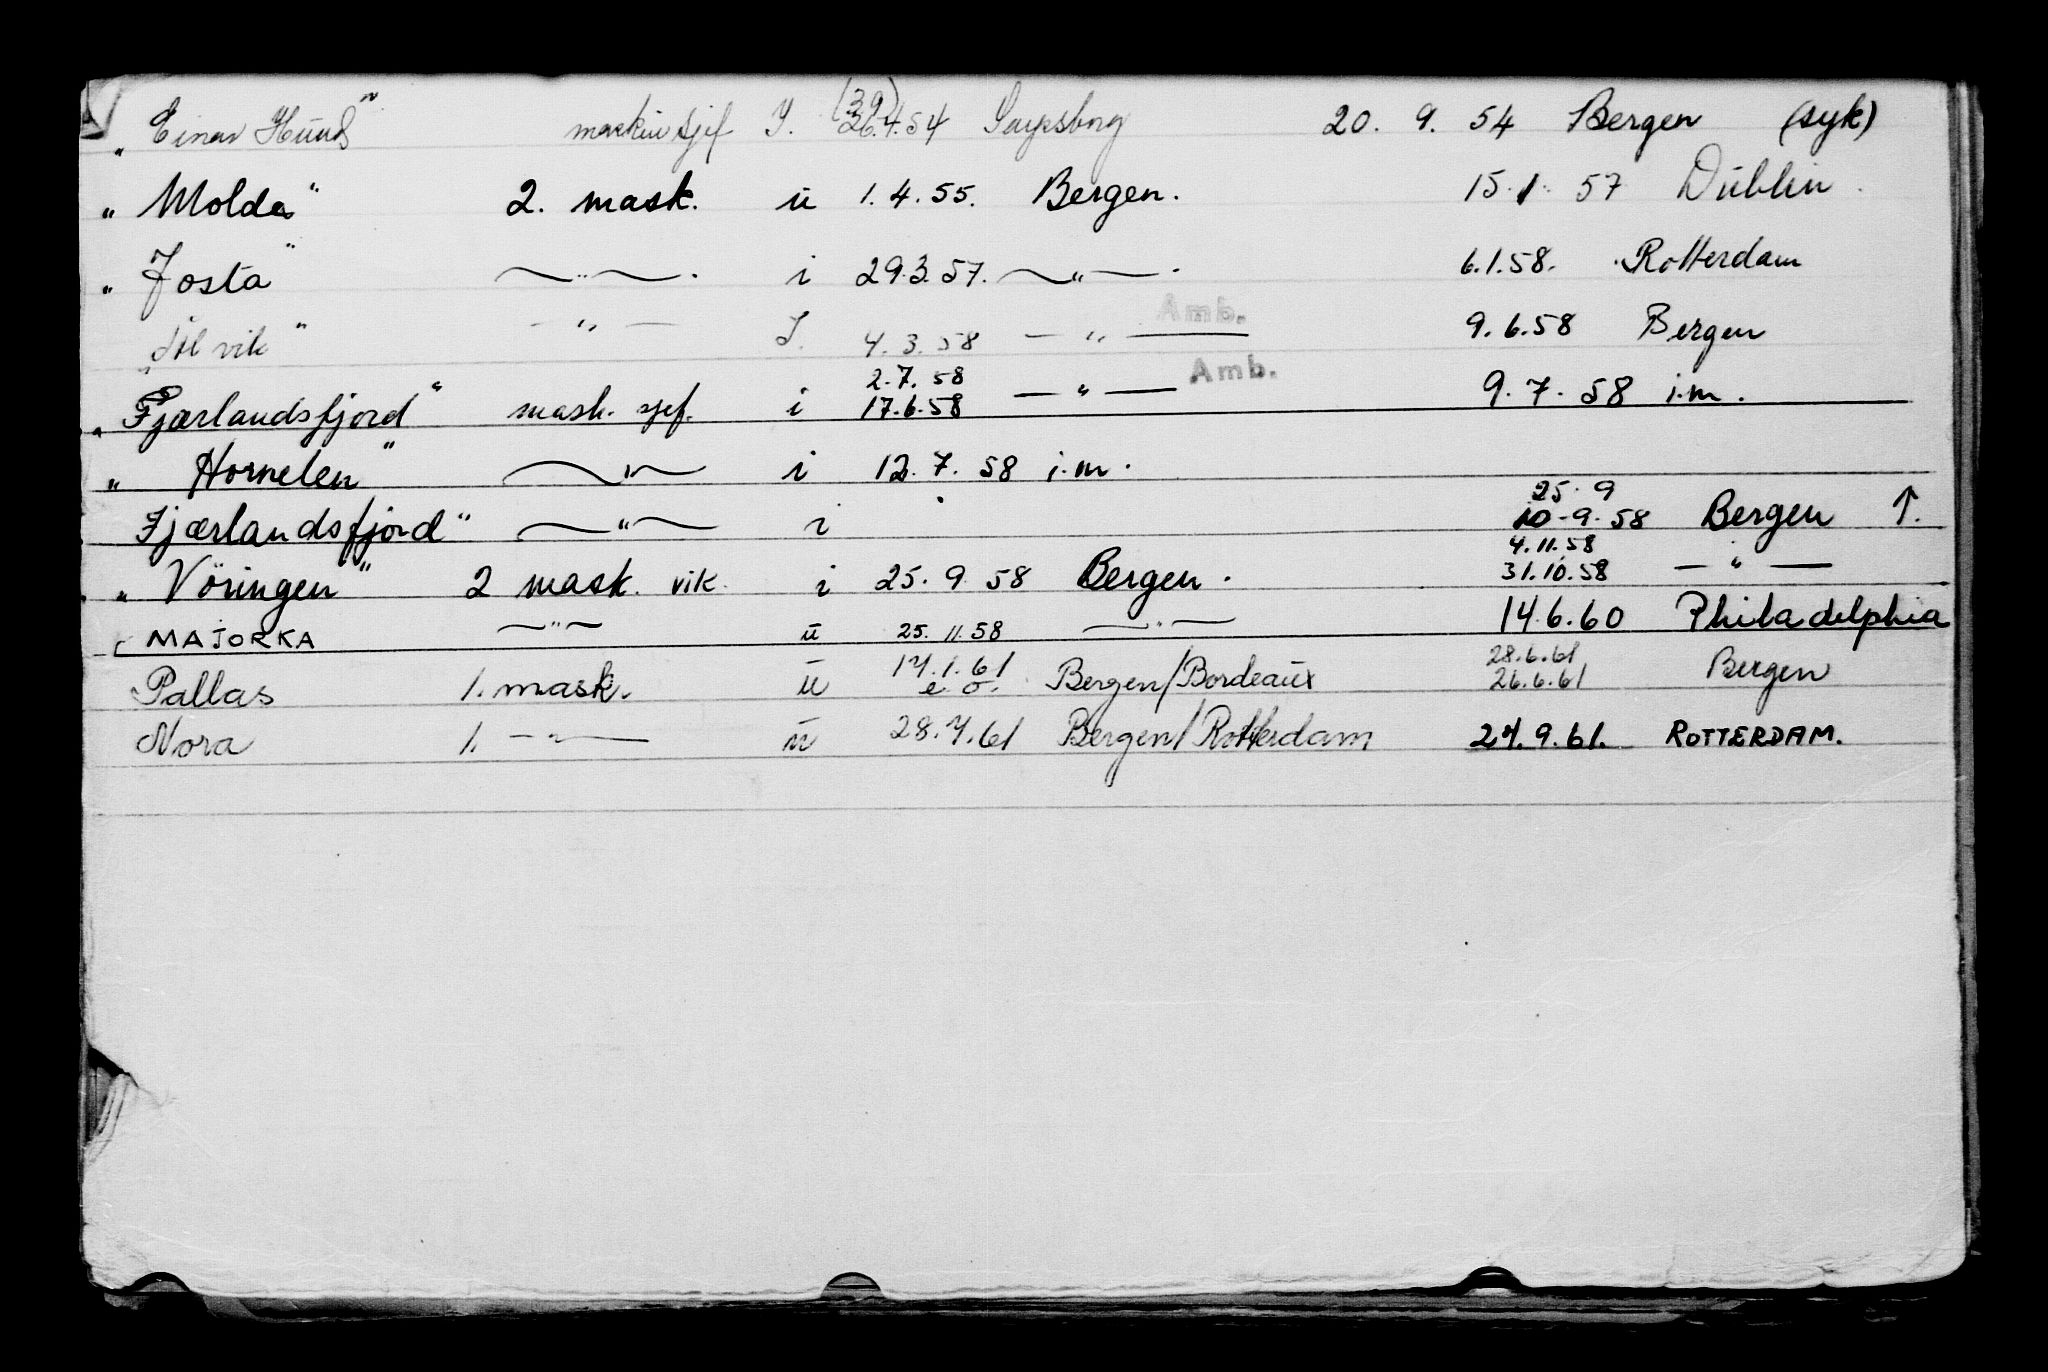 „ Einar Hund" maskinsjef I. (39) 26.4.54 Sarpsborg 20. 9. 54 Bergen (syk)
„ Molda" 2. mask. u 1.4.55. Bergen. 15.1.57 Dublin.
„ Josta" —"— i 29.3.57. —"— 6.1.58. Rotterdam
Amb.
„ Ålvik" —"— I. 4.3.58 —"— 9.6.58 Bergen
2.7.58 Amb.
„ Fjærlandsfjord" mask. sjef. i 17.6.58 —"— 9.7.58 i.m.
„ Hornelen" —"— i 12.7.58 i.m.
25.9
Fjærlandsfjord" —"— i 10-9-58 Bergen ↑.
4.11.58
„ Vöringen" 2 mask. vik. i 25.9.58 Bergen. 31.10.58 —"—
MAJORKA —"— u 25.11.58 —"— 14.6.60 Philadelphia
17.1.61 28.6.61
Pallas 1. mask. u e.o. Bergen/Bordeaux 26.6.61 Bergen
Nora 1. —"— u 28.7.61 Bergen/Rotterdam 27.9.61. ROTTERDAM.